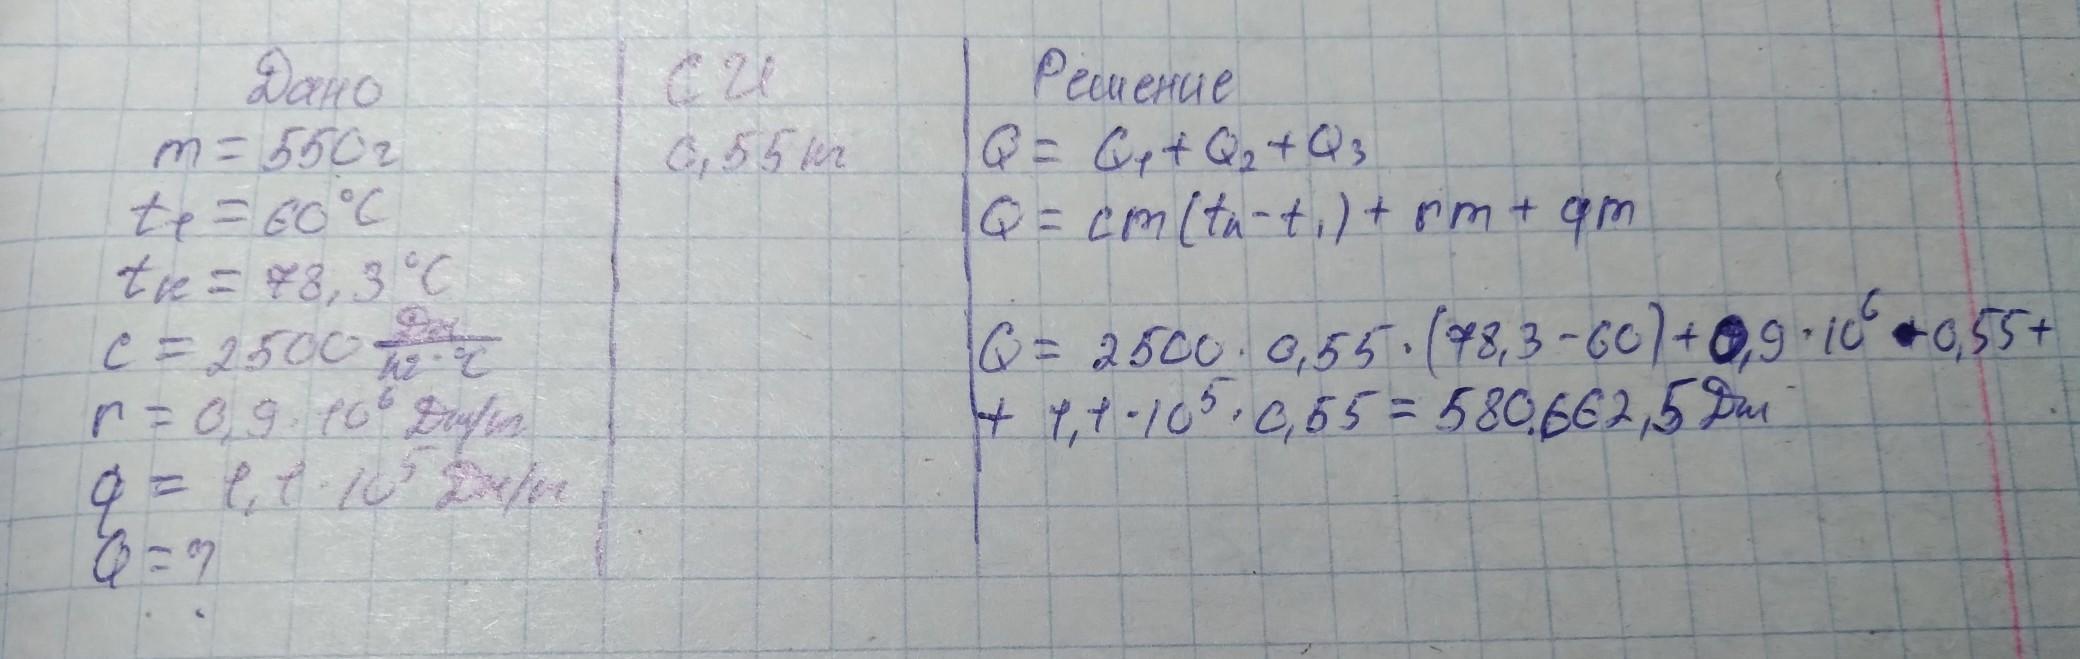 Дано
m = 550г
t₁ = 60°C
tк = 78,3°C
c = 2500 Дж/кг·°C
r = 0,9·10⁶ Дж/кг
q = 1,1·10⁵ Дж/кг
Q = ?
СИ
0,55 кг
Решение
Q = Q₁ + Q₂ + Q₃
Q = cm(tк - t₁) + rm + qm
Q = 2500 · 0,55 · (78,3 - 60) + 0,9 · 10⁶ · 0,55 +
+ 1,1 · 10⁵ · 0,55 = 580.662,5 Дж